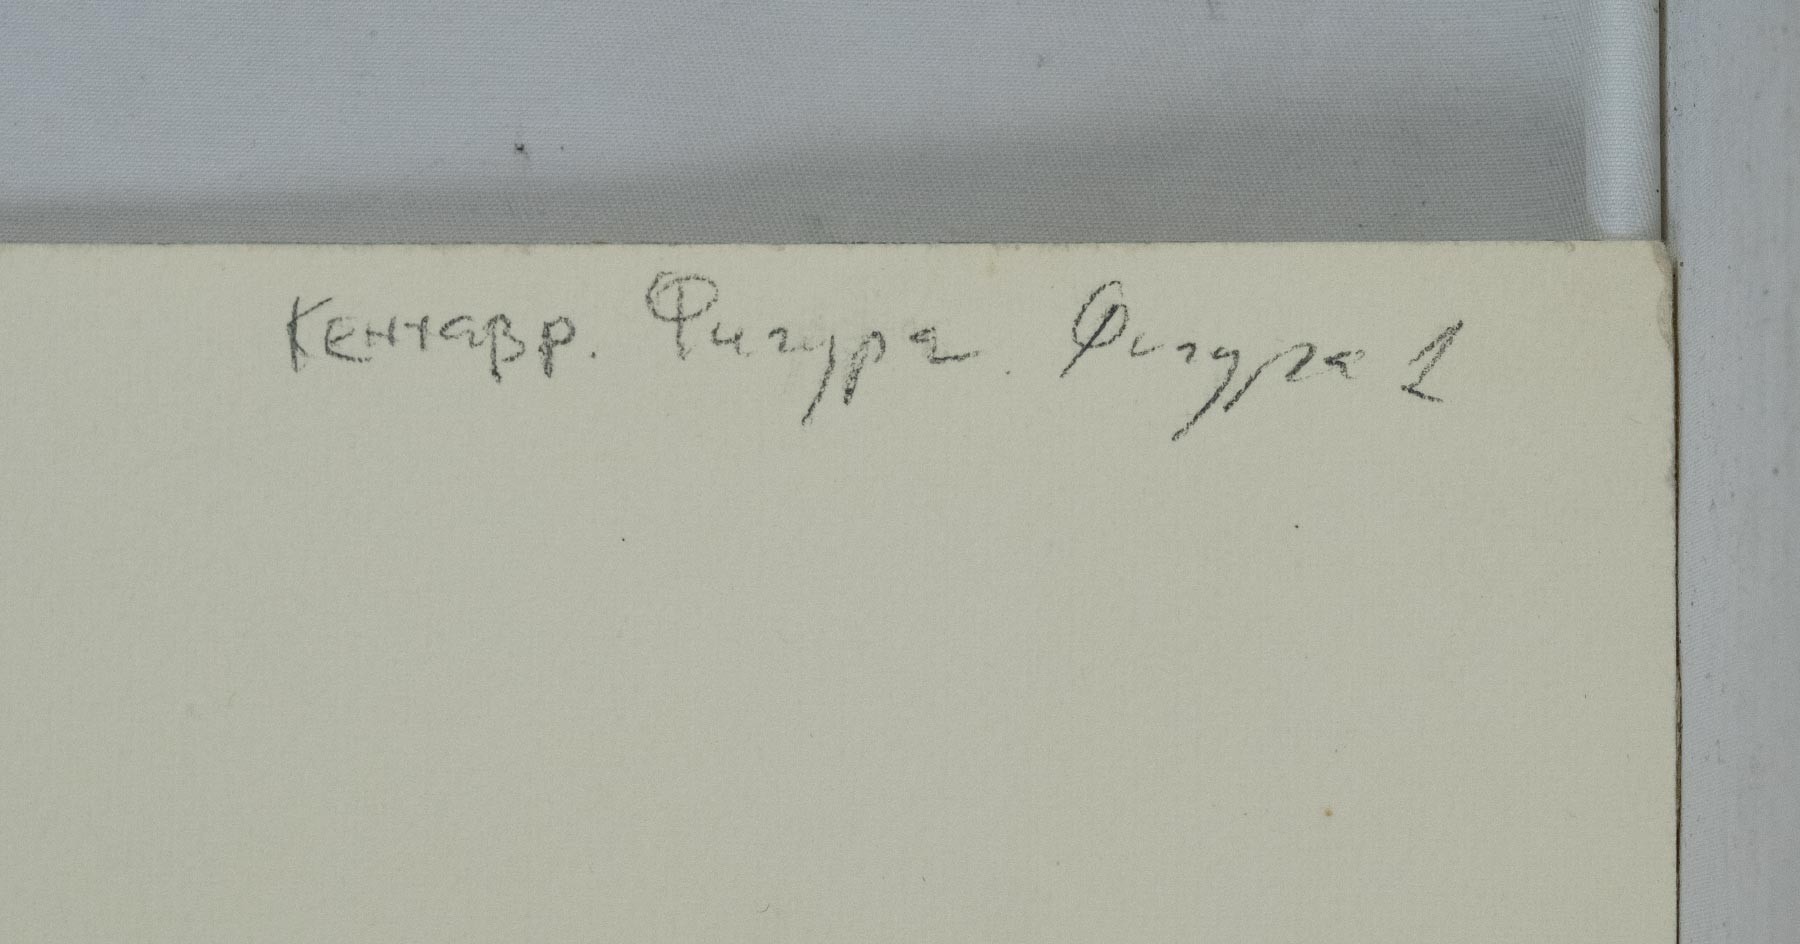 Кентавр. Фигура. Фигура 1